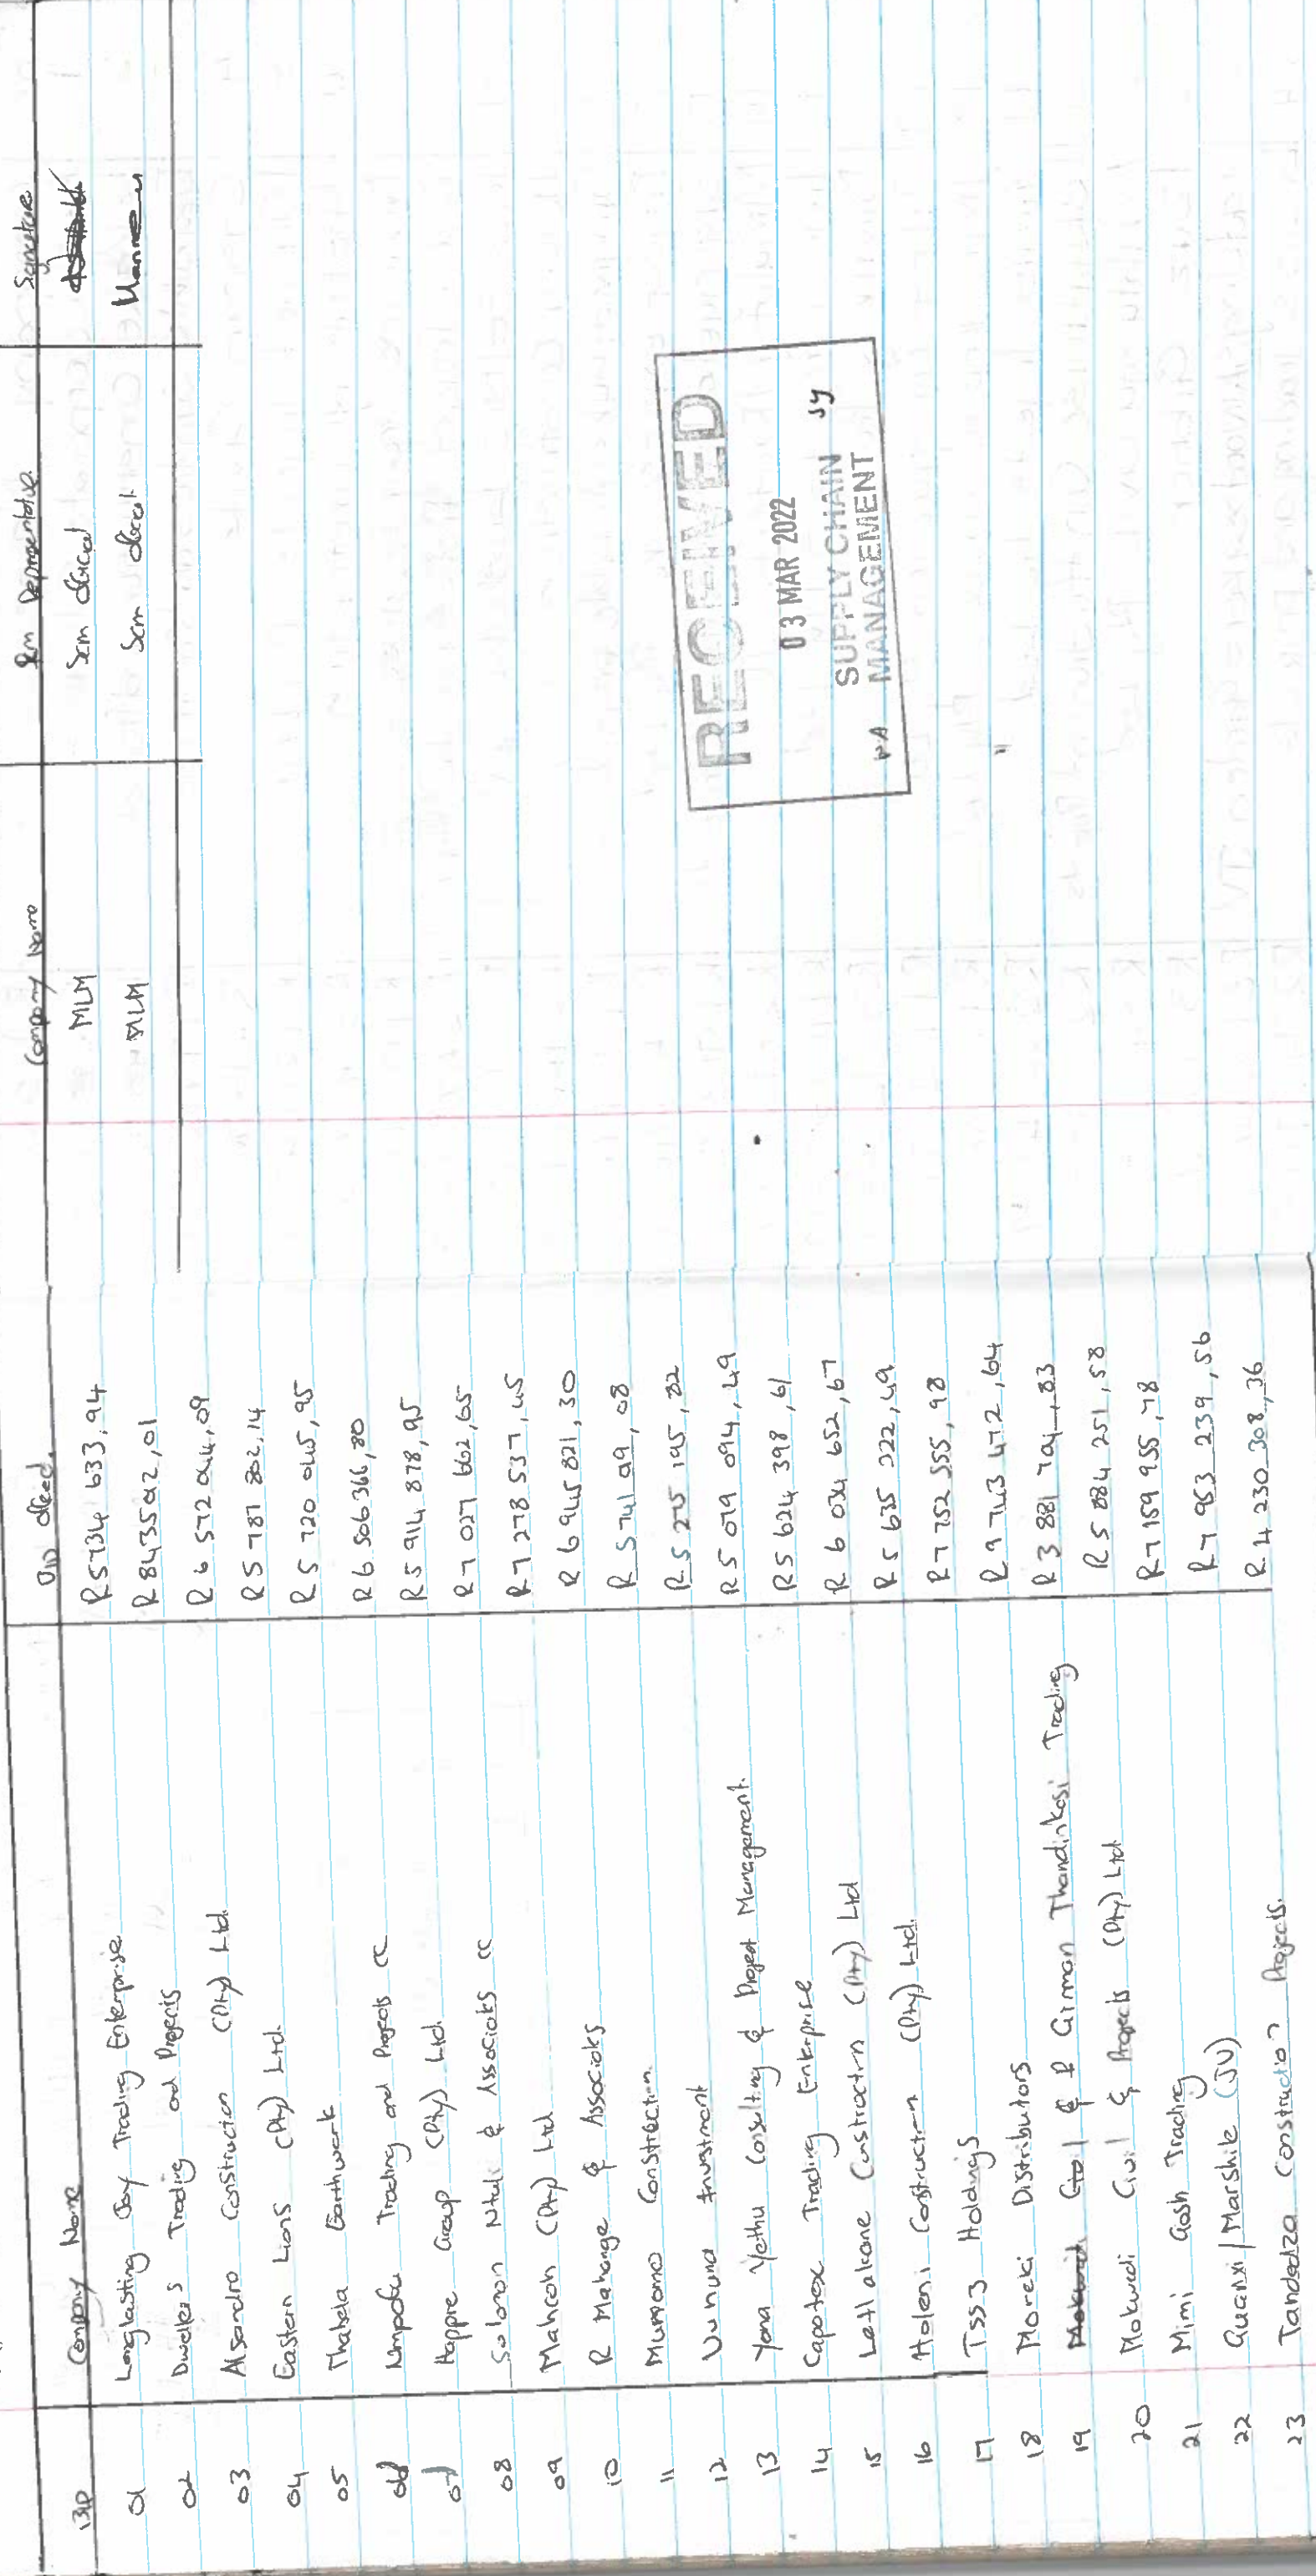 Bid Company Name Bid Price Company Name Rm Representative Signature
01 Longlasting Joy Trading Enterprise R5 734 633,94 MLM Scm
02 Dwellers Trading and Projects R 8 435 592,01 MLM Scm
03 Alsandro Construction (Pty) Ltd. R 6 572 044,09
04 Eastern Lions (Pty) Ltd. R5 787 802,14
05 Thabela Earthwork R 5 720 045,95
06 Trading and Projects cc R 6 506 366,80
07 Happre Group (Pty) Ltd. R5 914 878,95
08 Solomon Ntuli & Associates cc R 7 027 662,65
09 Mahcoh (Pty) Ltd R7 278 537,45
10 R Mahange & Associates R 6 945 821,30
11 Mumomo Construction R 5 741 99,08
12 Vuhuna Investment R5 275 195,82
13 Yona Yethu Consulting & Project Management. R5 079 094,49
14 Capotex Trading Enterprise R5 624 398,61
15 Letlakane Construction (Pty) Ltd R 6 034 652,67
16 Holeni Construction (Pty) Ltd. R 5 635 222,49
17 Tss3 Holdings R7 752 555,98
18 Moreki Distributors R 9 743 472,64
19 & Thandinkosi Trading R 3 881 794,83
20 Mokwedi Civil & Projects (Pty) Ltd R5 884 251,58
21 Mimi Gosh Trading R7 159 955,78
22 Quanxi/Marshile (JV) R7 953 239,56
23 Tandedza Construction Projects. R 4 230 308,36
RECEIVED
03 MAR 2022
SUPPLY CHAIN
MANAGEMENT